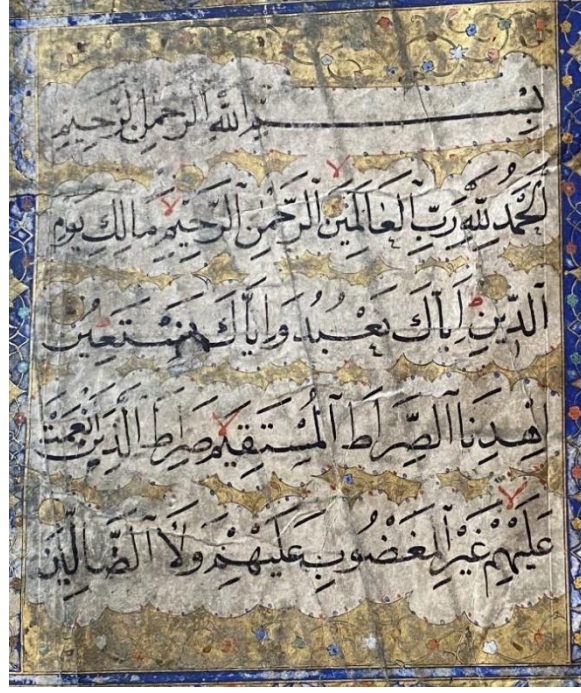 بِسْمِ اللَّهِ الرَّحْمٰنِ الرَّحِيمِ
اَلْحَمْدُ لِلَّهِ رَبِّ الْعَالَمِينَ الرَّحْمٰنِ الرَّحِيمِ مَالِكِ يَوْمِ
الدِّينِ اِيَّاكَ نَعْبُدُ وَاِيَّاكَ نَسْتَعِينُ
اِهْدِنَا الصِّرَاطَ الْمُسْتَقِيمَ صِرَاطَ الَّذِينَ اَنْعَمْتَ
عَلَيْهِمْ غَيْرِ الْمَغْضُوبِ عَلَيْهِمْ وَلَا الضَّالِّينَ